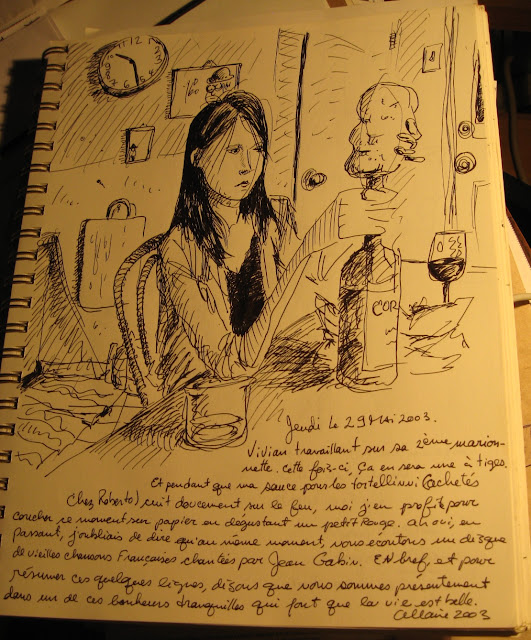 COR
Jeudi le 29 Mai 2003.
Vivian travaillant sur sa 2ème marion-
nette. Cette fois-ci, ça en sera une à tiges.
Et pendant que ma sauce pour les tortellinis (achetés
chez Roberto) cuit doucement sur le feu, moi j'en profite pour
coucher ce moment sur papier en dégustant un petit Rouge. Ah oui, en
passant, j'oubliais de dire qu'au même moment, nous écoutons un disque
de vieilles chansons Françaises chantées par Jean Gabin. EN bref, et pour
résumer ces quelques lignes, disons que nous sommes présentement
dans un de ces bonheurs tranquilles qui font que la vie est belle.
Cellaire 2003